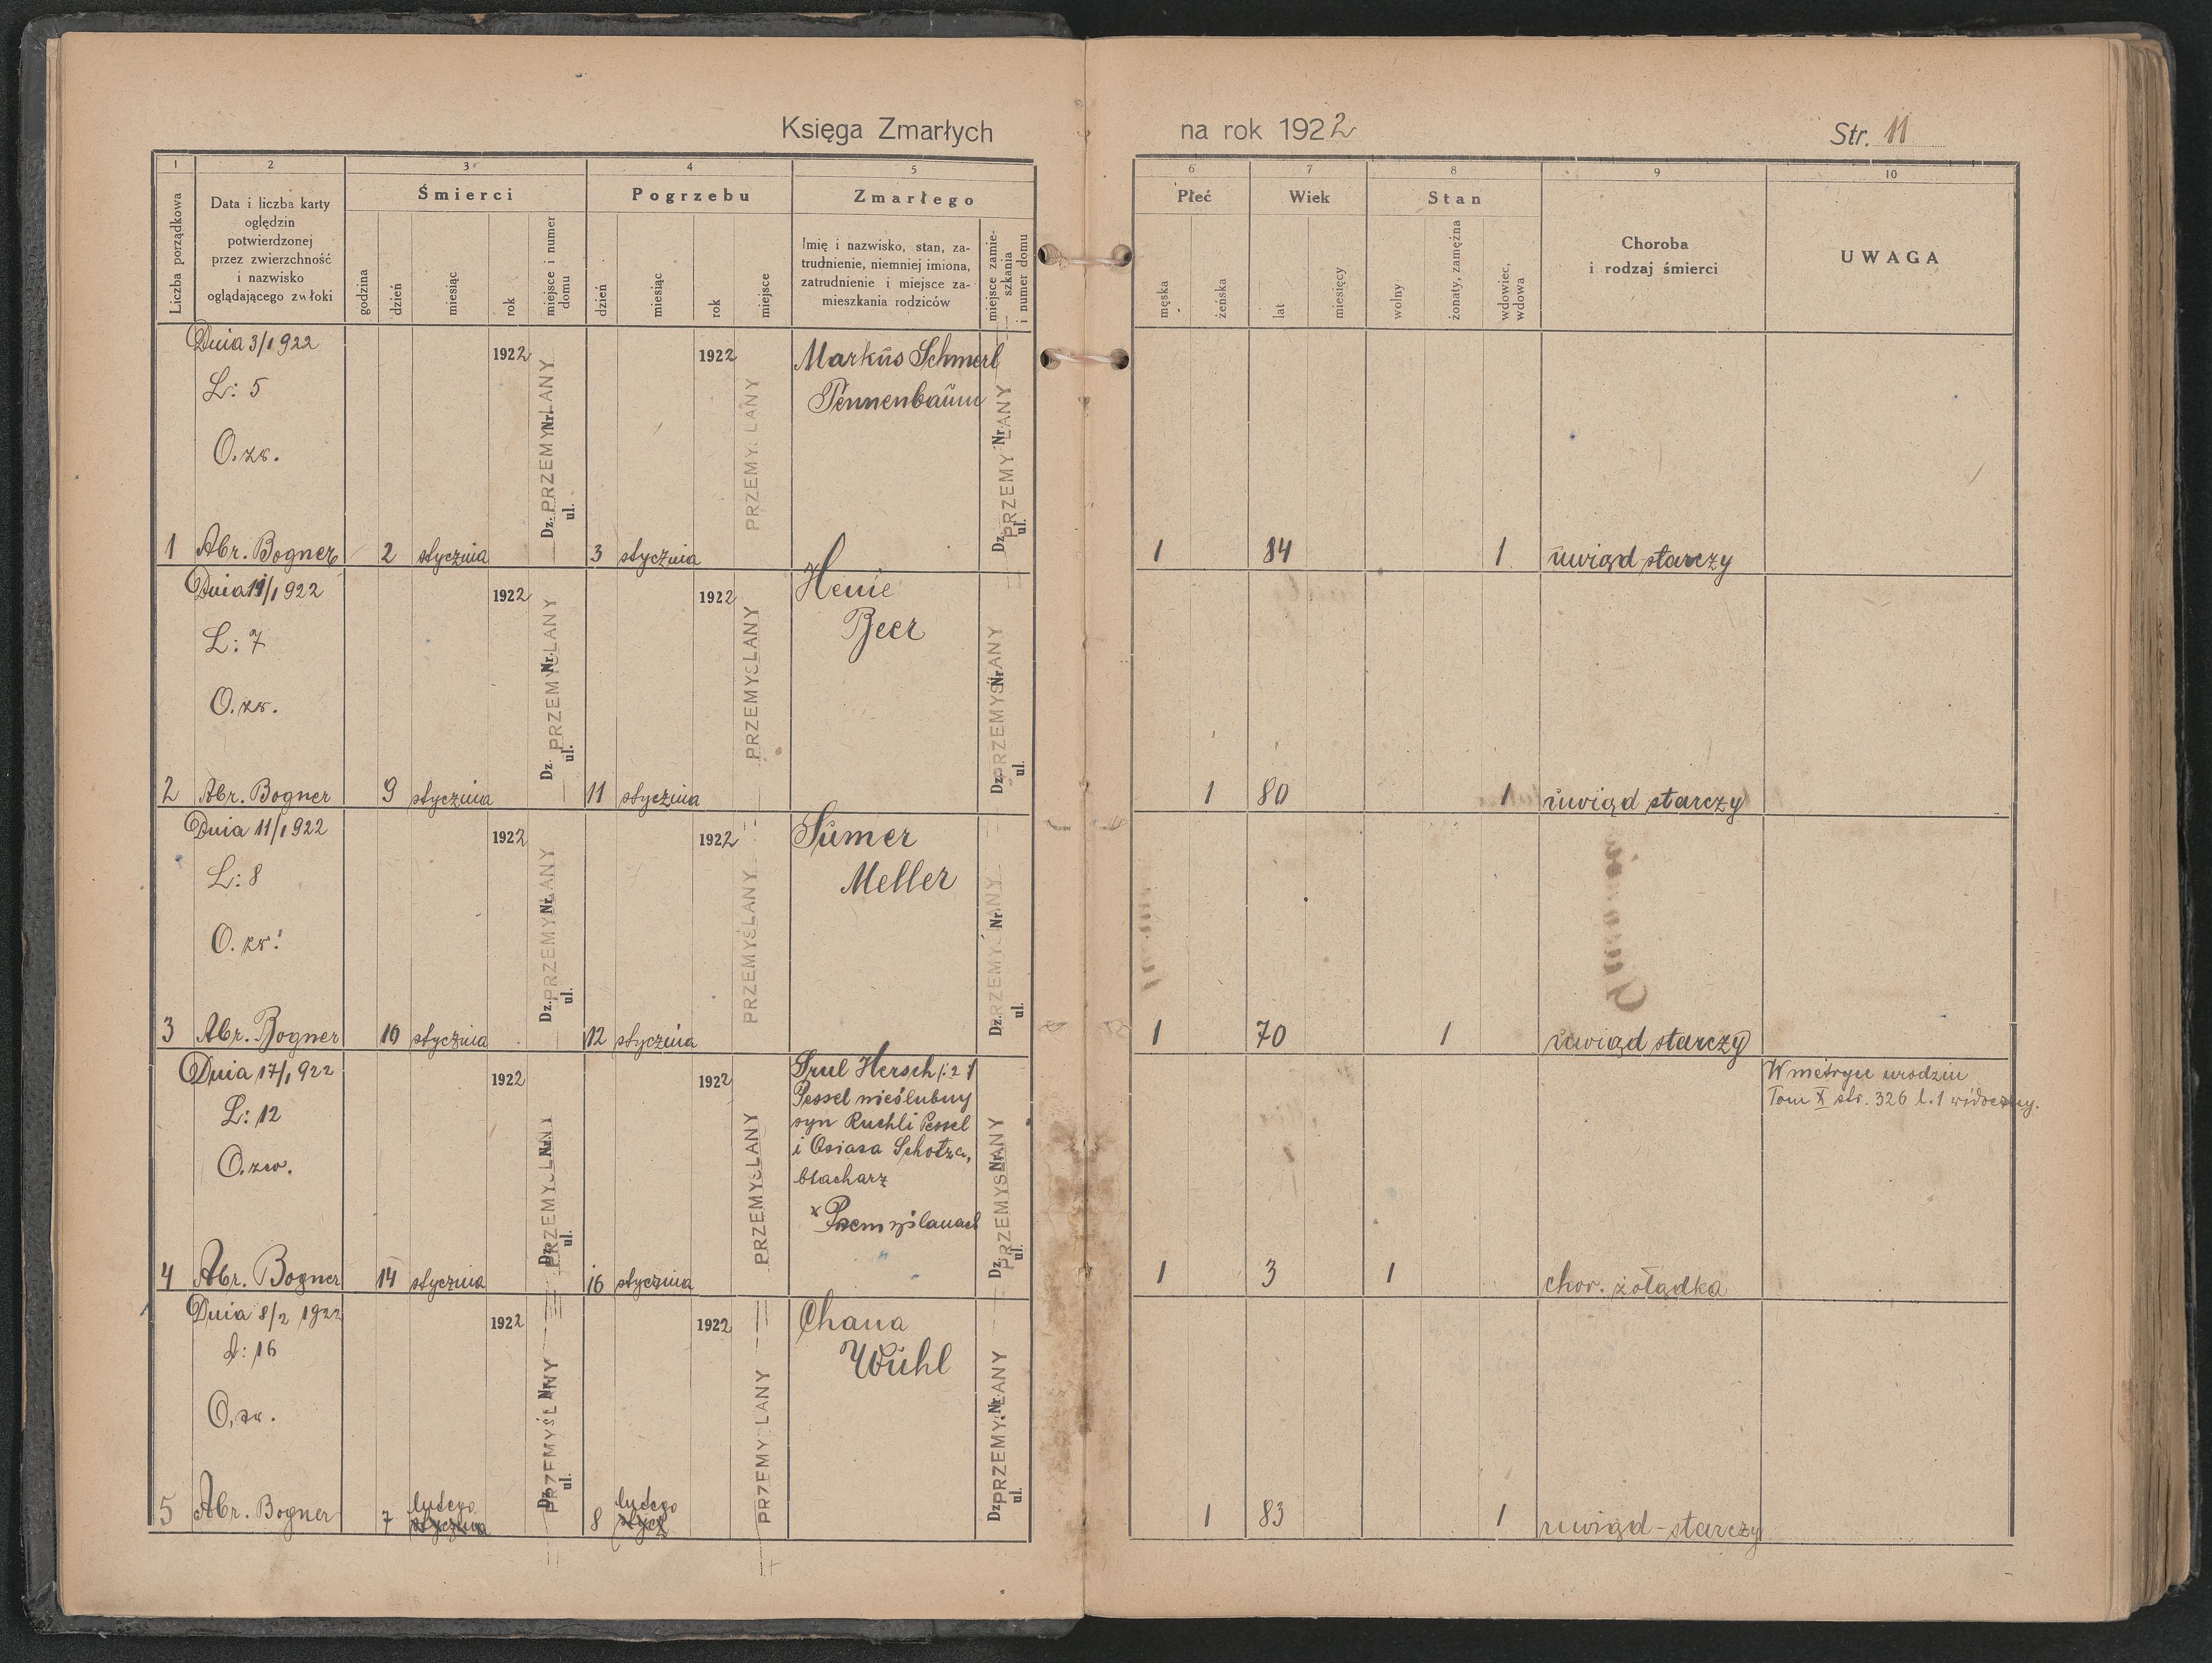 Księga Zmarłych
na rok 1922
Str. 11
1
2
3
4
5
6
7
8
9
10
Liczba porządkowa
Data i liczba karty
oględzin
potwierdzonej
przez zwierzchność
i nazwisko
oglądającego zwłoki
Śmierci
godzina
dzień
miesiąc
rok
miejsce i numer
domu
Pogrzebu
dzień
miesiąc
rok
miejsce
Zmarłego
Imię i nazwisko, stan, za-
trudnienie, niemniej imiona,
zatrudnienie i miejsce za-
mieszkania rodziców
miejsce zamie-
szkania
i numer domu
Płeć
męska
żeńska
Wiek
lat
miesięcy
Stan
wolny
żonaty, zamężna
wdowiec,
wdowa
Choroba
i rodzaj śmierci
UWAGA
Dnia 3/1 922
L: 5
O. zw.
1 Abr. Bogner 2 stycznia 1922 Dz. Nr. ul. PRZEMYŚLANY
3 stycznia 1922 PRZEMYŚLANY
Markus Schmerl
Tennenbaum
Dz. Nr. ul. PRZEMYŚLANY
1 84 1 uwiąd starczy
Dnia 11/1 922
L: 7
O. zw.
2 Abr. Bogner 9 stycznia 1922 Dz. Nr. ul. PRZEMYŚLANY
11 stycznia 1922 PRZEMYŚLANY
Henie
Beer
Dz. Nr. ul. PRZEMYŚLANY
1 80 1 uwiąd starczy
Dnia 11/1 922
L: 8
O. zw.
3 Abr. Bogner 10 stycznia 1922 Dz. Nr. ul. PRZEMYŚLANY
12 stycznia 1922 PRZEMYŚLANY
Sumer
Meller
Dz. Nr. ul. PRZEMYŚLANY
1 70 1 uwiąd starczy
Dnia 17/1 922
L: 12
O. zw.
4 Abr. Bogner 14 stycznia 1922 Dz. Nr. ul. PRZEMYŚLANY
16 stycznia 1922 PRZEMYŚLANY
Srul Hersch
Pessel nieślubny
syn Ruchli Pessel
i Osiasa Schotza,
blacharz
w Przemyślanach
Dz. Nr. ul. PRZEMYŚLANY
1 3 1 chor. żołądka
W metryce urodzin
Tom X str. 326 l. 1 widoczny.
Dnia 8/2 1922
L: 16
O. zw.
5 Abr. Bogner 7 lutego stycznia 1922 Dz. Nr. ul. PRZEMYŚLANY
8 lutego stycz 1922 PRZEMYŚLANY
Chana
Wühl
Dz. Nr. ul. PRZEMYŚLANY
1 83 1 uwiąd - starczy